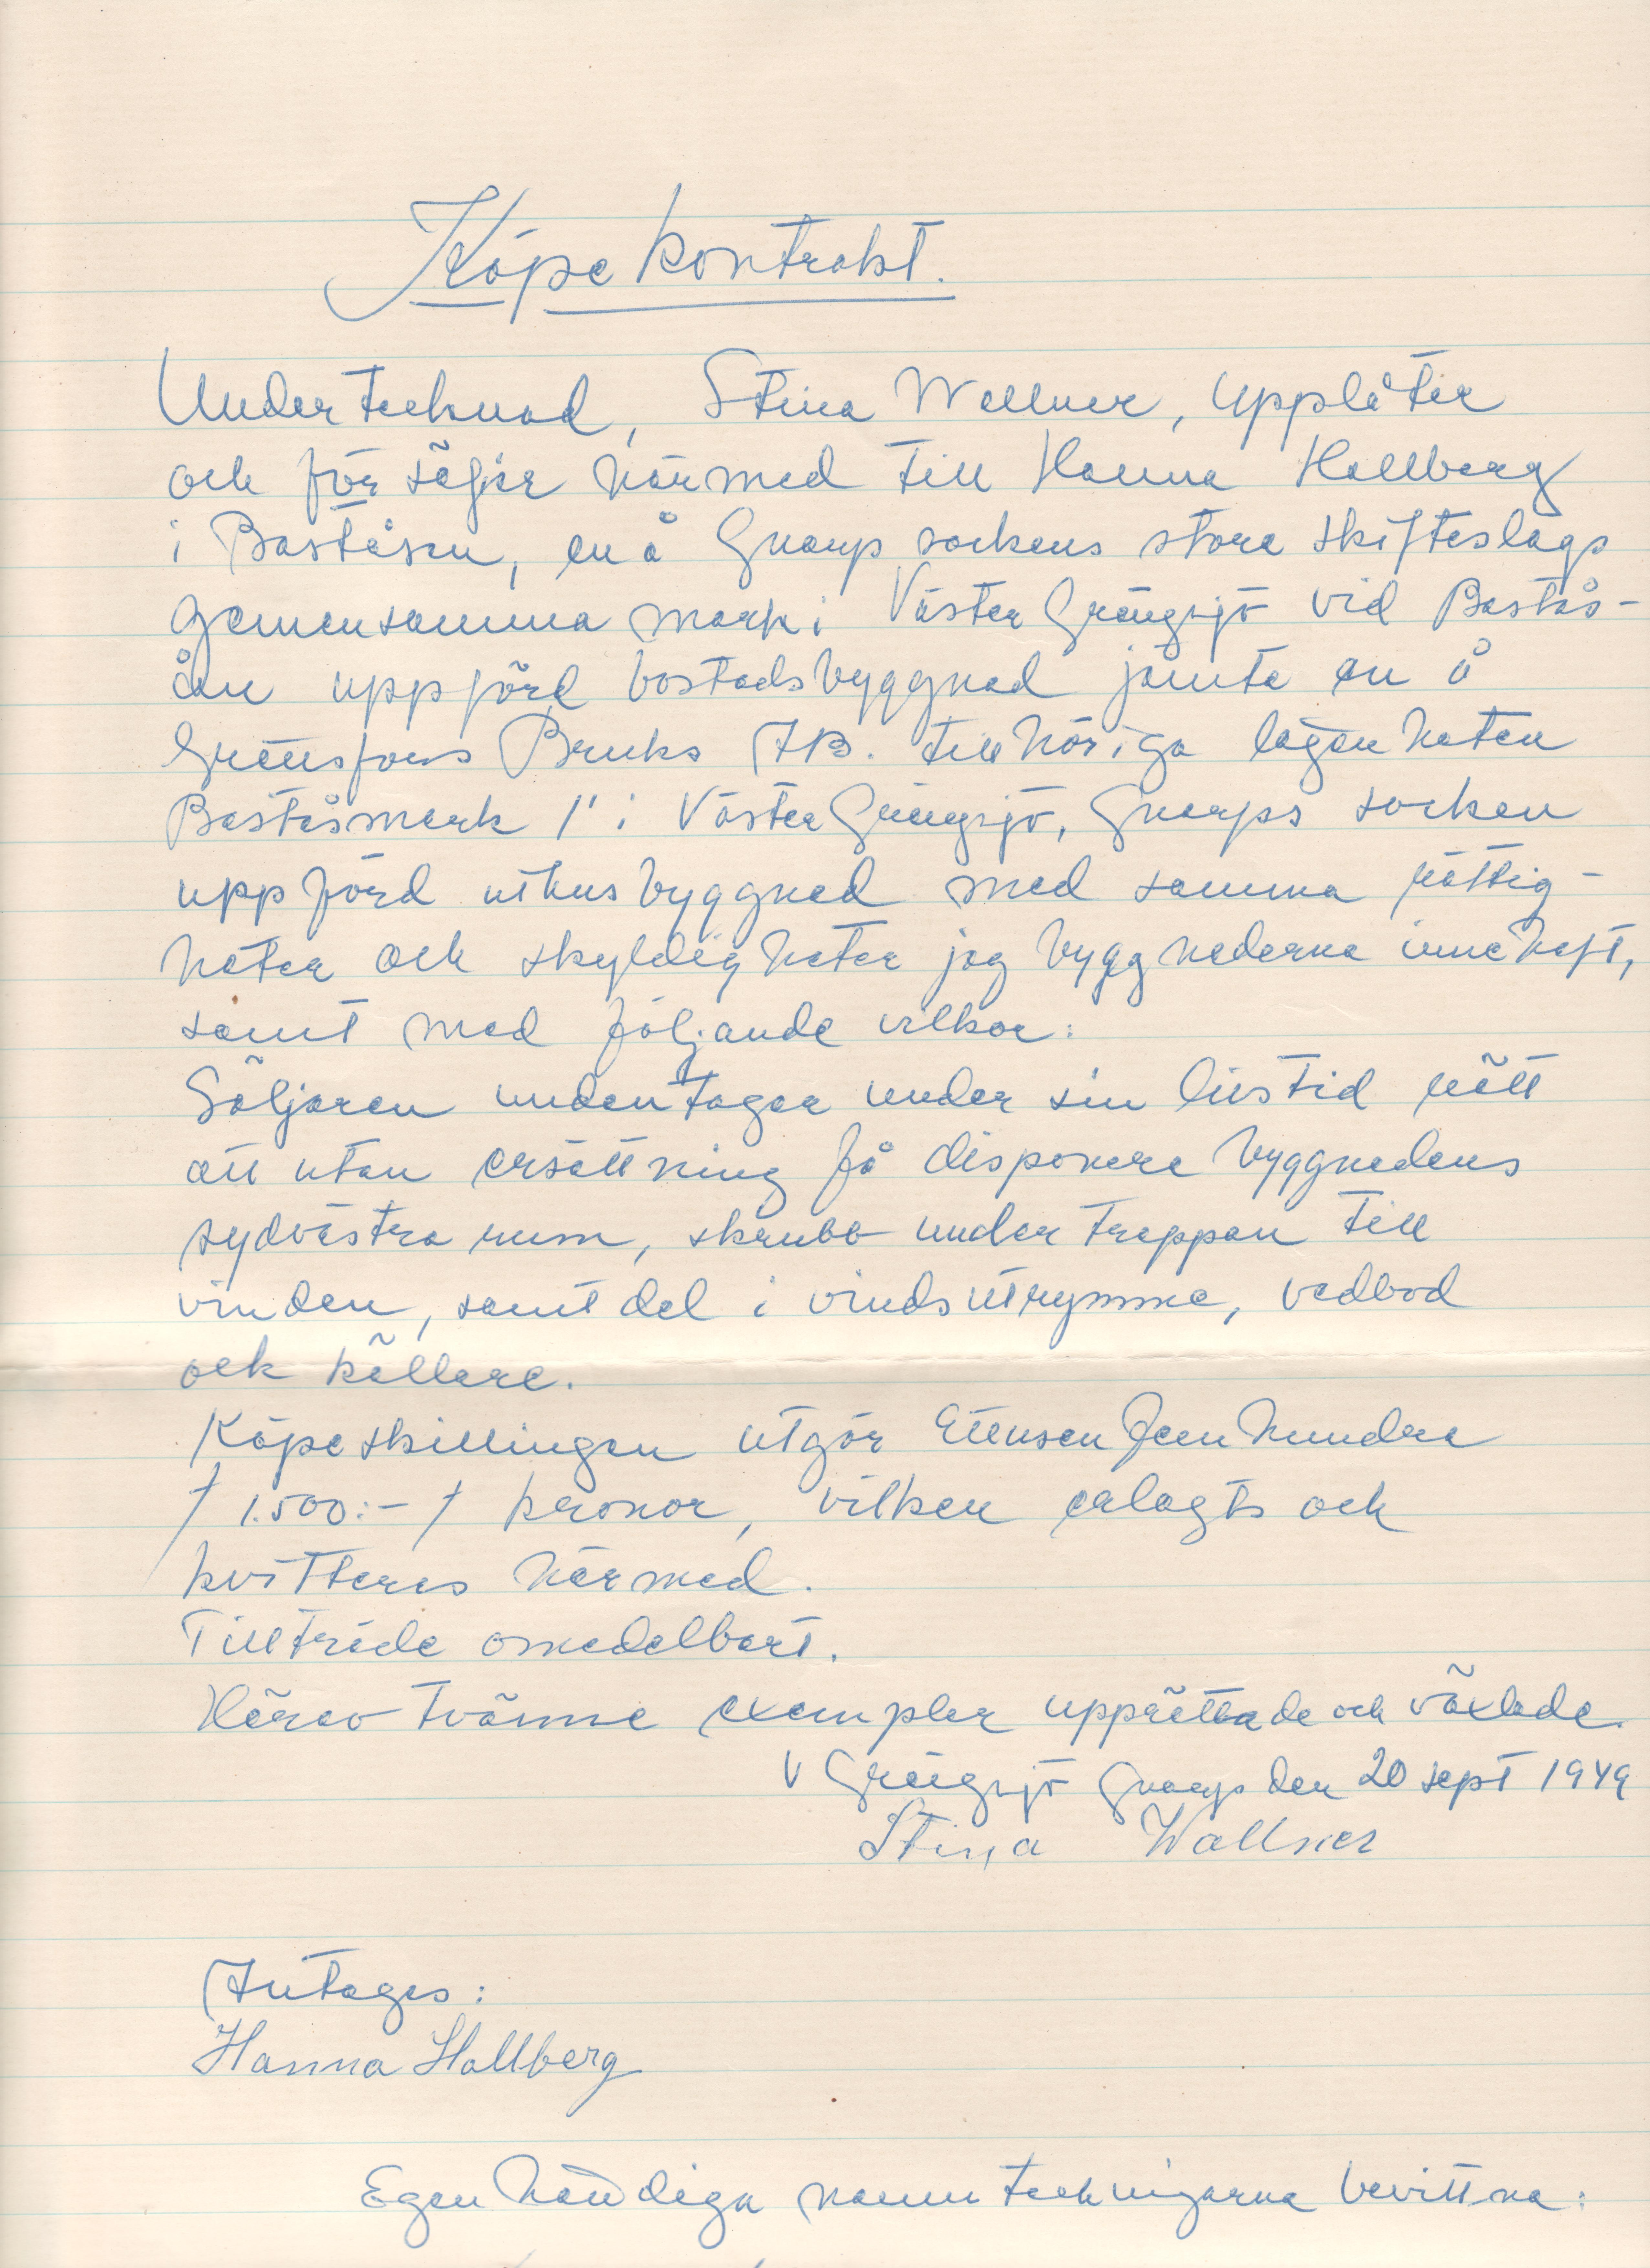 Köpekontrakt.
Undertecknad, Stina Wallner, upplåter
och försäljer härmed till Hanna Hallberg
i Baståsen, en å Gnarps sockens stora skifteslags
gemensamma mark i Väster Grängsjö vid Bastås-
ån uppförd bostadsbyggnad jämte en å
Gränsfors Bruks AB. tillhöriga lägenheten
Baståsmark 1¹ i Väster Grängsjö, Gnarps socken
uppförd uthusbyggnad med samma rättig-
heter och skyldigheter jag byggnaderna innehaft,
samt med följande vilkor:
Säljaren undentager under sin livstid rätt
att utan ersättning få disponera byggnadens
sydvästra rum, skrubb under trappan till
vinden, samt del i vindsutrymme, vedbod
och källare.
Köpeskillingen utgör Ettusen femhundra
/ 1.500:- / kronor, vilken erlagts och
kvitteras härmed.
Tillträde omedelbart.
Härav tvänne exemplar upprättade och växlade.
V Grängsjö Gnarp den 20 sept 1949
Stina Wallner
Antages:
Hanna Hallberg
Egenhändiga namnteckningarna bevittna: